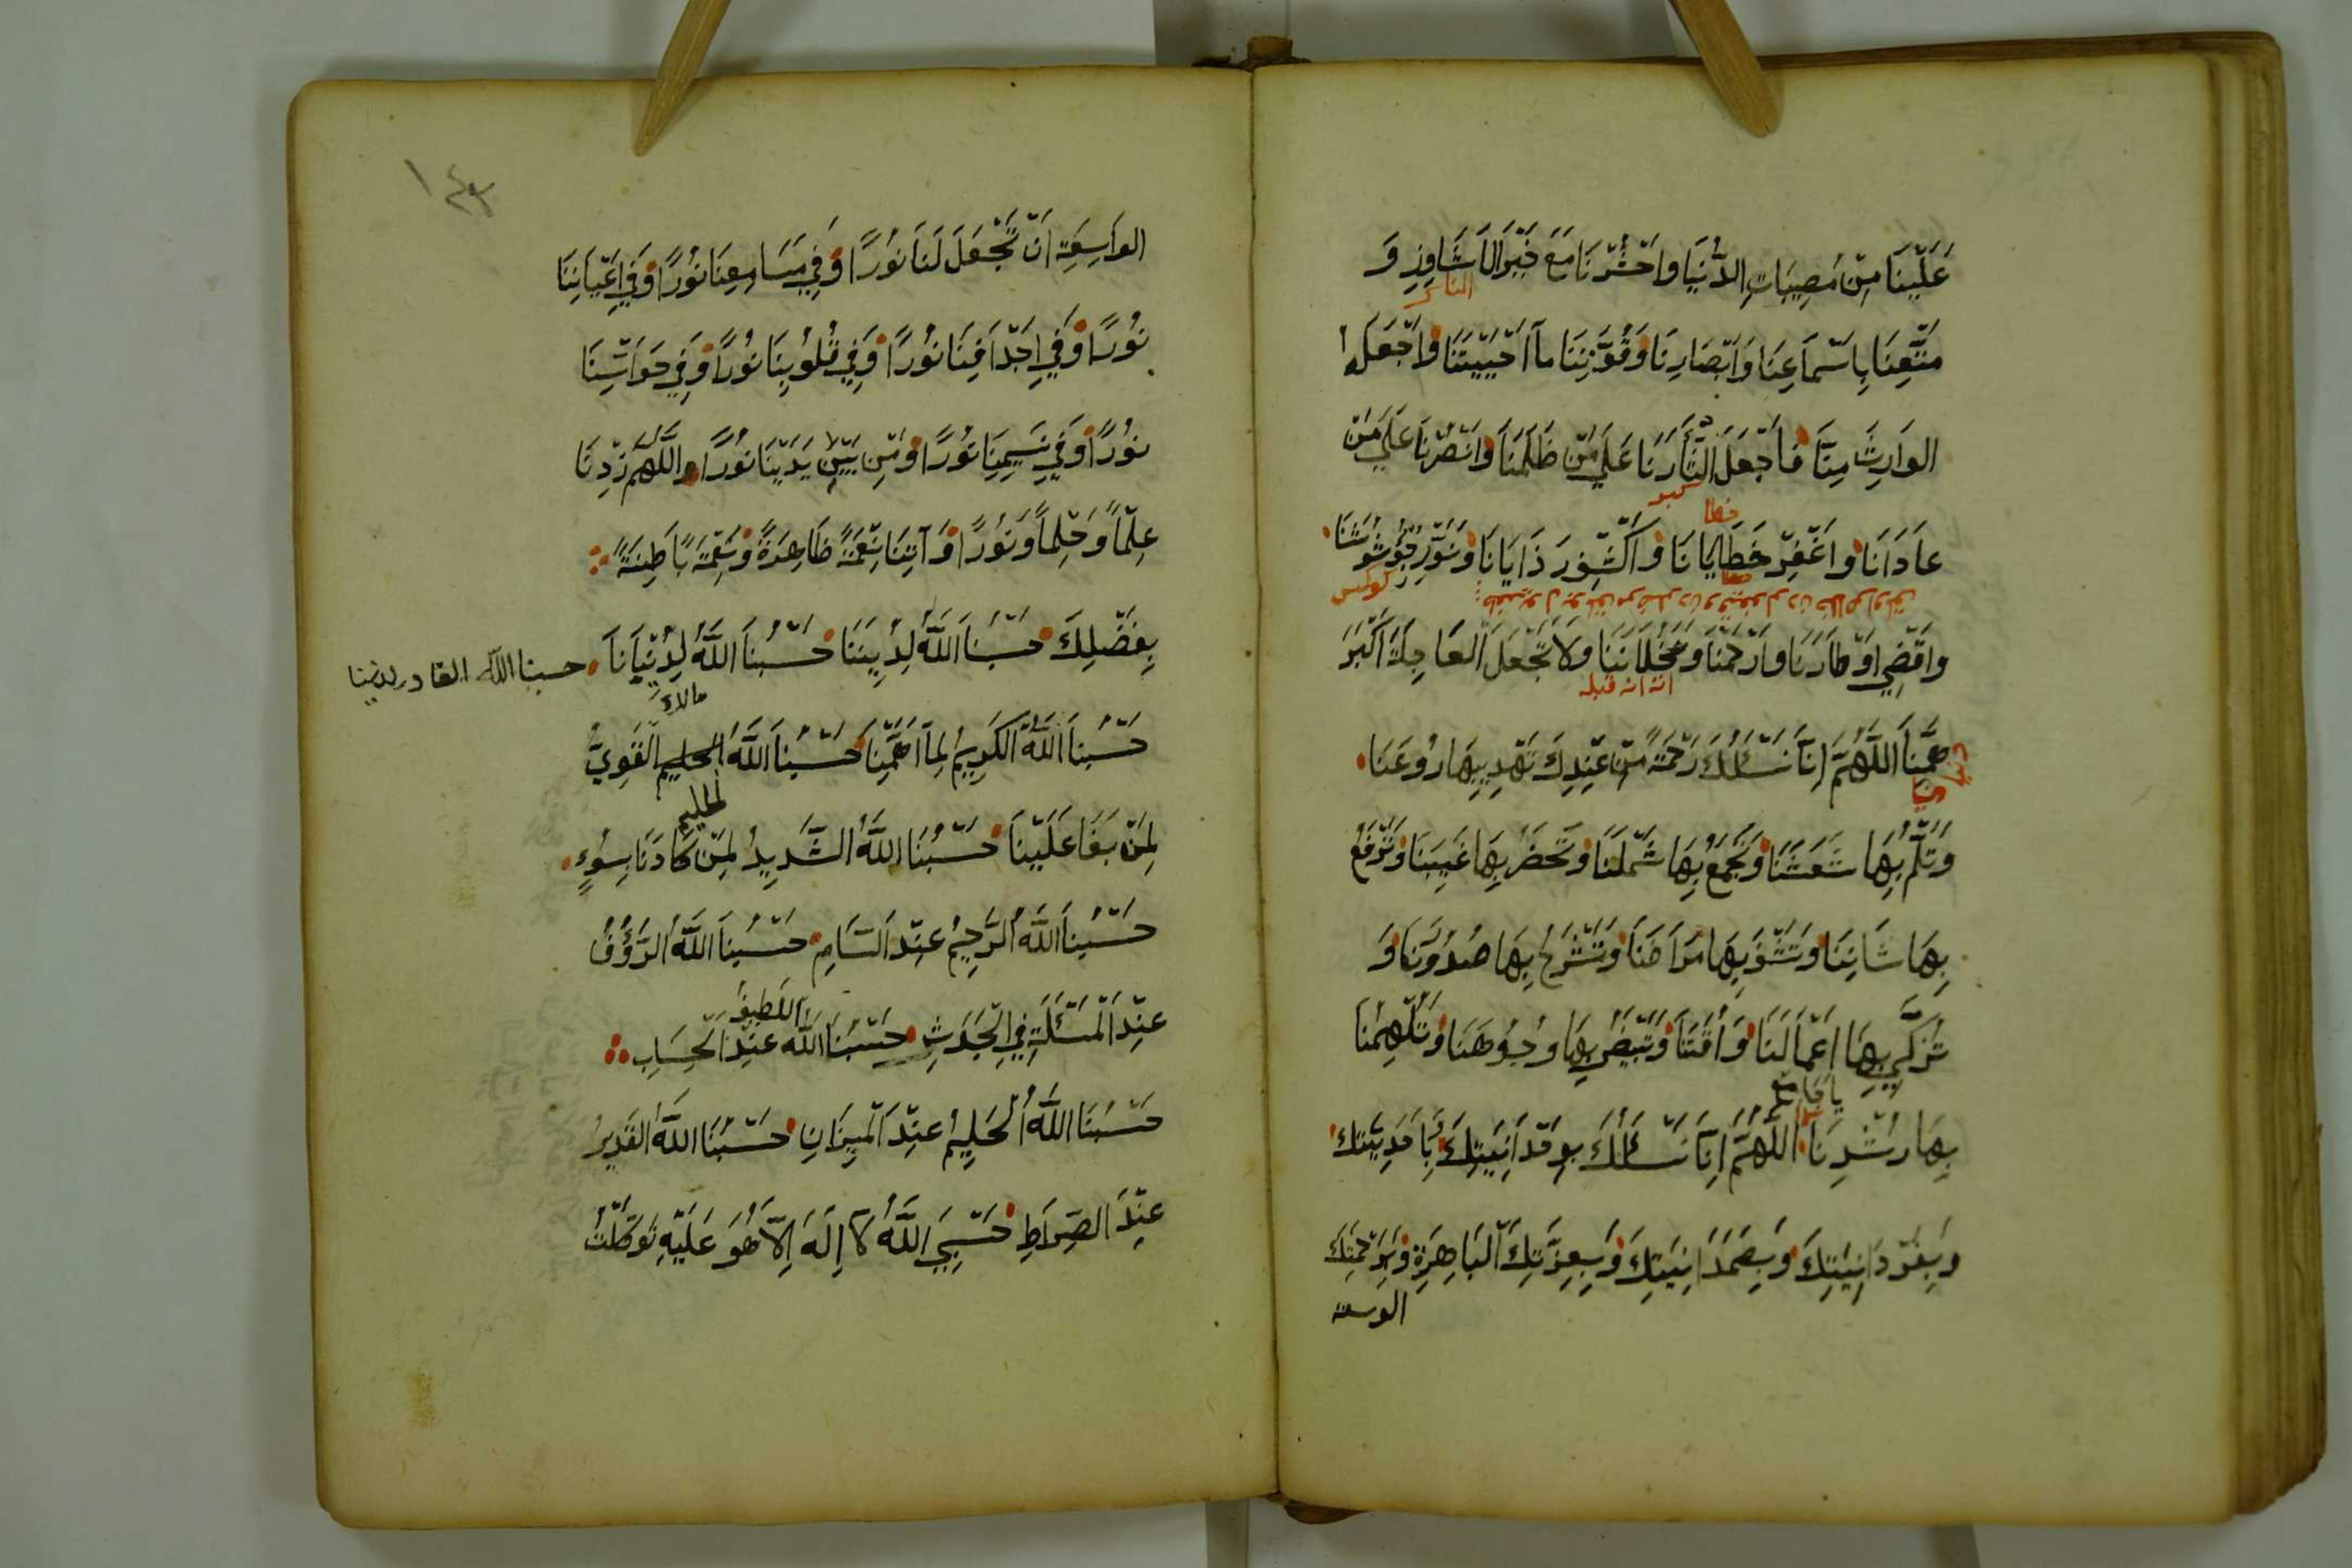 عَلَيْنَا مِنْ مُصِيبَاتِ الدُّنْيَا وَاحْشُرْنَا مَعَ خَيْرِ الْاَشَاوِزِ وَ
مَتِّعْنَا بِاَسْمَاعِنَا وَاَبْصَارِنَا وَقُوَّتِنَا مَا اَحْيَيْتَنَا وَاجْعَلْ
الوَارِثَ مِنَّا فَاجْعَلِ الثَّأْرَنَا عَلَى مَنْ ظَلَمَنَا وَانْصُرْنَا عَلَى مَنْ
خطا
عَادَانَا وَاغْفِرْ خَطَايَانَا وَاكْشِفْ رَذَايَانَا وَنَوِّرْ جُؤْشُوشَنَا
وَاقْضِ اَوْطَارَنَا وَارْحَمْنَا وَلَا تَجْعَلِ الْعَاجِلَةَ اَكْبَرَ
هَمِّنَا اَللّٰهُمَّ اِنَّا نَسْئَلُكَ رَحْمَةً مِنْ عِنْدِكَ تَهْدِي بِهَا رُوعَنَا
وَتَلُمُّ بِهَا شَعَثَنَا وَتَجْمَعُ بِهَا شَمْلَنَا وَتَحْضُرُ بِهَا غَيْبَنَا وَتَرْفَعُ
بِهَا شَانِنَا وَتَشْفِ بِهَا مَرَاضَنَا وَتَشْرَحُ بِهَا صُدُورَنَا وَ
تُزَكِّي بِهَا اَعْمَالَنَا وَاَوْقَتَنَا وَتُبَيِّضُ بِهَا وُجُوهَنَا وَتُلْهِمُنَا
بِهَا رُشْدَنَا اَللّٰهُمَّ اِنَّا نَسْئَلُكَ بِوَقْدَانِيَتِكَ بِاَمَدِيَّتِكَ
وَبِفَرْدَانِيَتِكَ وَبِصَمَدَانِيَتِكَ وَبِعِزَّتِكَ الْبَاهِرَةِ وَبِرَحْمَتِكَ
الوسعة
١٤٣
الوَاسِعَةِ اَنْ تَجْعَلَ لَنَا نُورًا وَفِي مَسَامِعِنَا نُورًا وَفِي اَعْيَانِنَا
نُورًا وَفِي اَجْدَافِنَا نُورًا وَفِي قُلُوبِنَا نُورًا وَفِي حَوَاسِّنَا
نُورًا وَفِي نَسِيمِنَا نُورًا وَمِنْ بَيْنِ يَدَيْنَا نُورًا اَللّٰهُمَّ زِدْنَا
عِلْمًا وَحِلْمًا وَنُورًا وَآتِنَا نِعْمَةً ظَاهِرَةً وَنِعْمَةً بَاطِنَةً
بِفَضْلِكَ حَسْبُنَا اللّٰهُ لِدِينِنَا حَسْبُنَا اللّٰهُ لِدُنْيَانَا
حسبنا الله القادر لديننا
حَسْبُنَا اللّٰهُ الْكَرِيمُ لِمَا اَهَمَّنَا حَسْبُنَا اللّٰهُ الحليم الْقَوِيُّ
الحليم
لِمَنْ بَغَا عَلَيْنَا حَسْبُنَا اللّٰهُ الشَّدِيدُ لِمَنْ كَادَنَا بِسُوءٍ
حَسْبُنَا اللّٰهُ الرَّحِيمُ عِنْدَ السَّامِ حَسْبُنَا اللّٰهُ الرَّؤُفُ
عِنْدَ الْمَسْئَلَةِ فِي الْجَدَثِ حَسْبُنَا اللّٰهُ عِنْدَ الْحِسَابِ
اللطيف
حَسْبُنَا اللّٰهُ الْحَلِيمُ عِنْدَ الْمِيزَانِ حَسْبُنَا اللّٰهُ الْقَدِيرُ
عِنْدَ الصِّرَاطِ حَسْبِيَ اللّٰهُ لَا اِلٰهَ اِلَّا هُوَ عَلَيْهِ تَوَكَّلْتُ